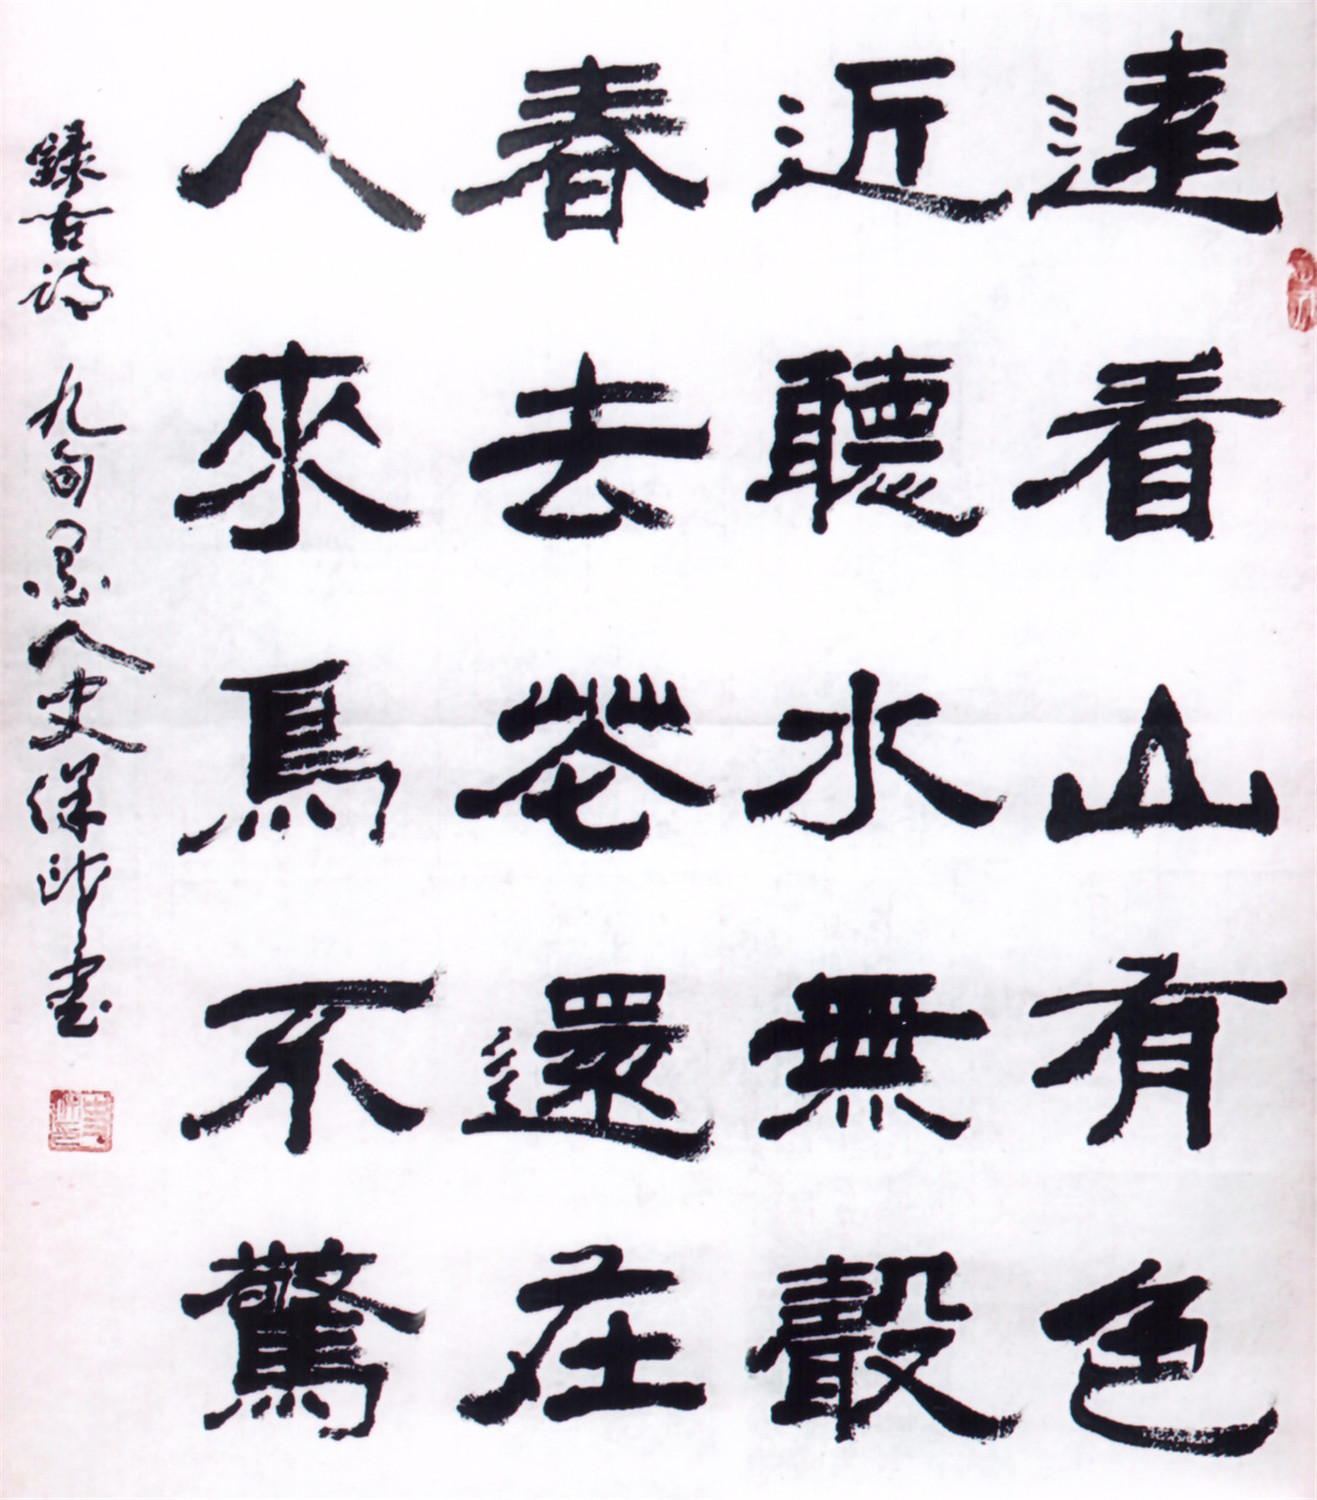 遠看山有色
近聽水無聲
春去花還在
人來鳥不驚
錄古詩 九旬愚人史保洲書